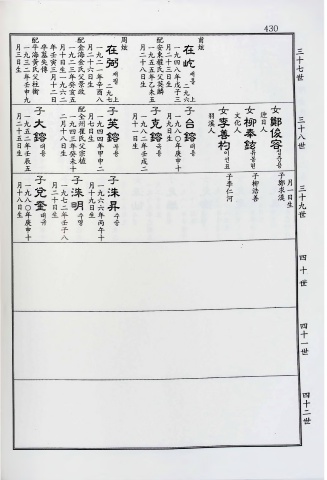 430
三十七世
三十八世
三十九世
四十世
四十一世
四十二世
在屹 재흘 二九六上
一九四八年戊子三
配安東權氏父英麟
一九五五年乙未五
在弼 재필 二九七上
一九二一年辛酉八
月二十六日生
配金海金氏父景政
月十日生一九六二
年壬寅三月十二日
卒墓失傳
配平海黃氏父柱衡
一九三二年壬申九
月三日生
女鄭俊容 정준용
迎日人
女柳奉鉉 유봉현
文化人
女李善杓 이선표
羽溪人
子台鎔 태용
一九八〇年庚申十
子克鎔 극용
一九八二年壬戌二
子英鎔 영용
一九四四年甲申二
月七日生
配全州崔氏父宗植
一九四三年癸未十
二月二十八日生
子大鎔 대용
一九五二年壬辰五
月二十五日生
月一日生
子鄭求漢
子柳浩善
子李仁河
子洙昇 수승
一九六六年丙午十
月十九日生
子洙明 수명
一九七二年壬子八
月二十日生
子兌奎 태규
一九八〇年庚申十
月十八日生